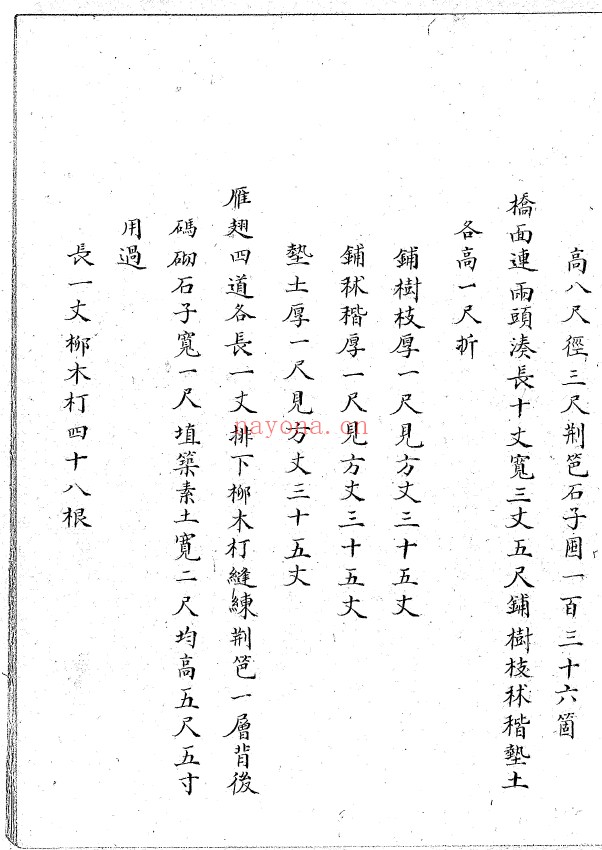 高八尺徑三尺荆笆石子囤一百三十六箇
橋面連兩頭湊長十丈寬三丈五尺鋪樹枝秫稭墊土
各高一尺折
鋪樹枝厚一尺見方丈三十五丈
鋪秫稭厚一尺見方丈三十五丈
墊土厚一尺見方丈三十五丈
雁翅四道各長一丈排下柳木朾四縫練荆笆一層背後
碼砌石子寬一尺填築素土寬二尺均高五尺五寸
用過
長一丈柳木朾四十八根
nayona.cn